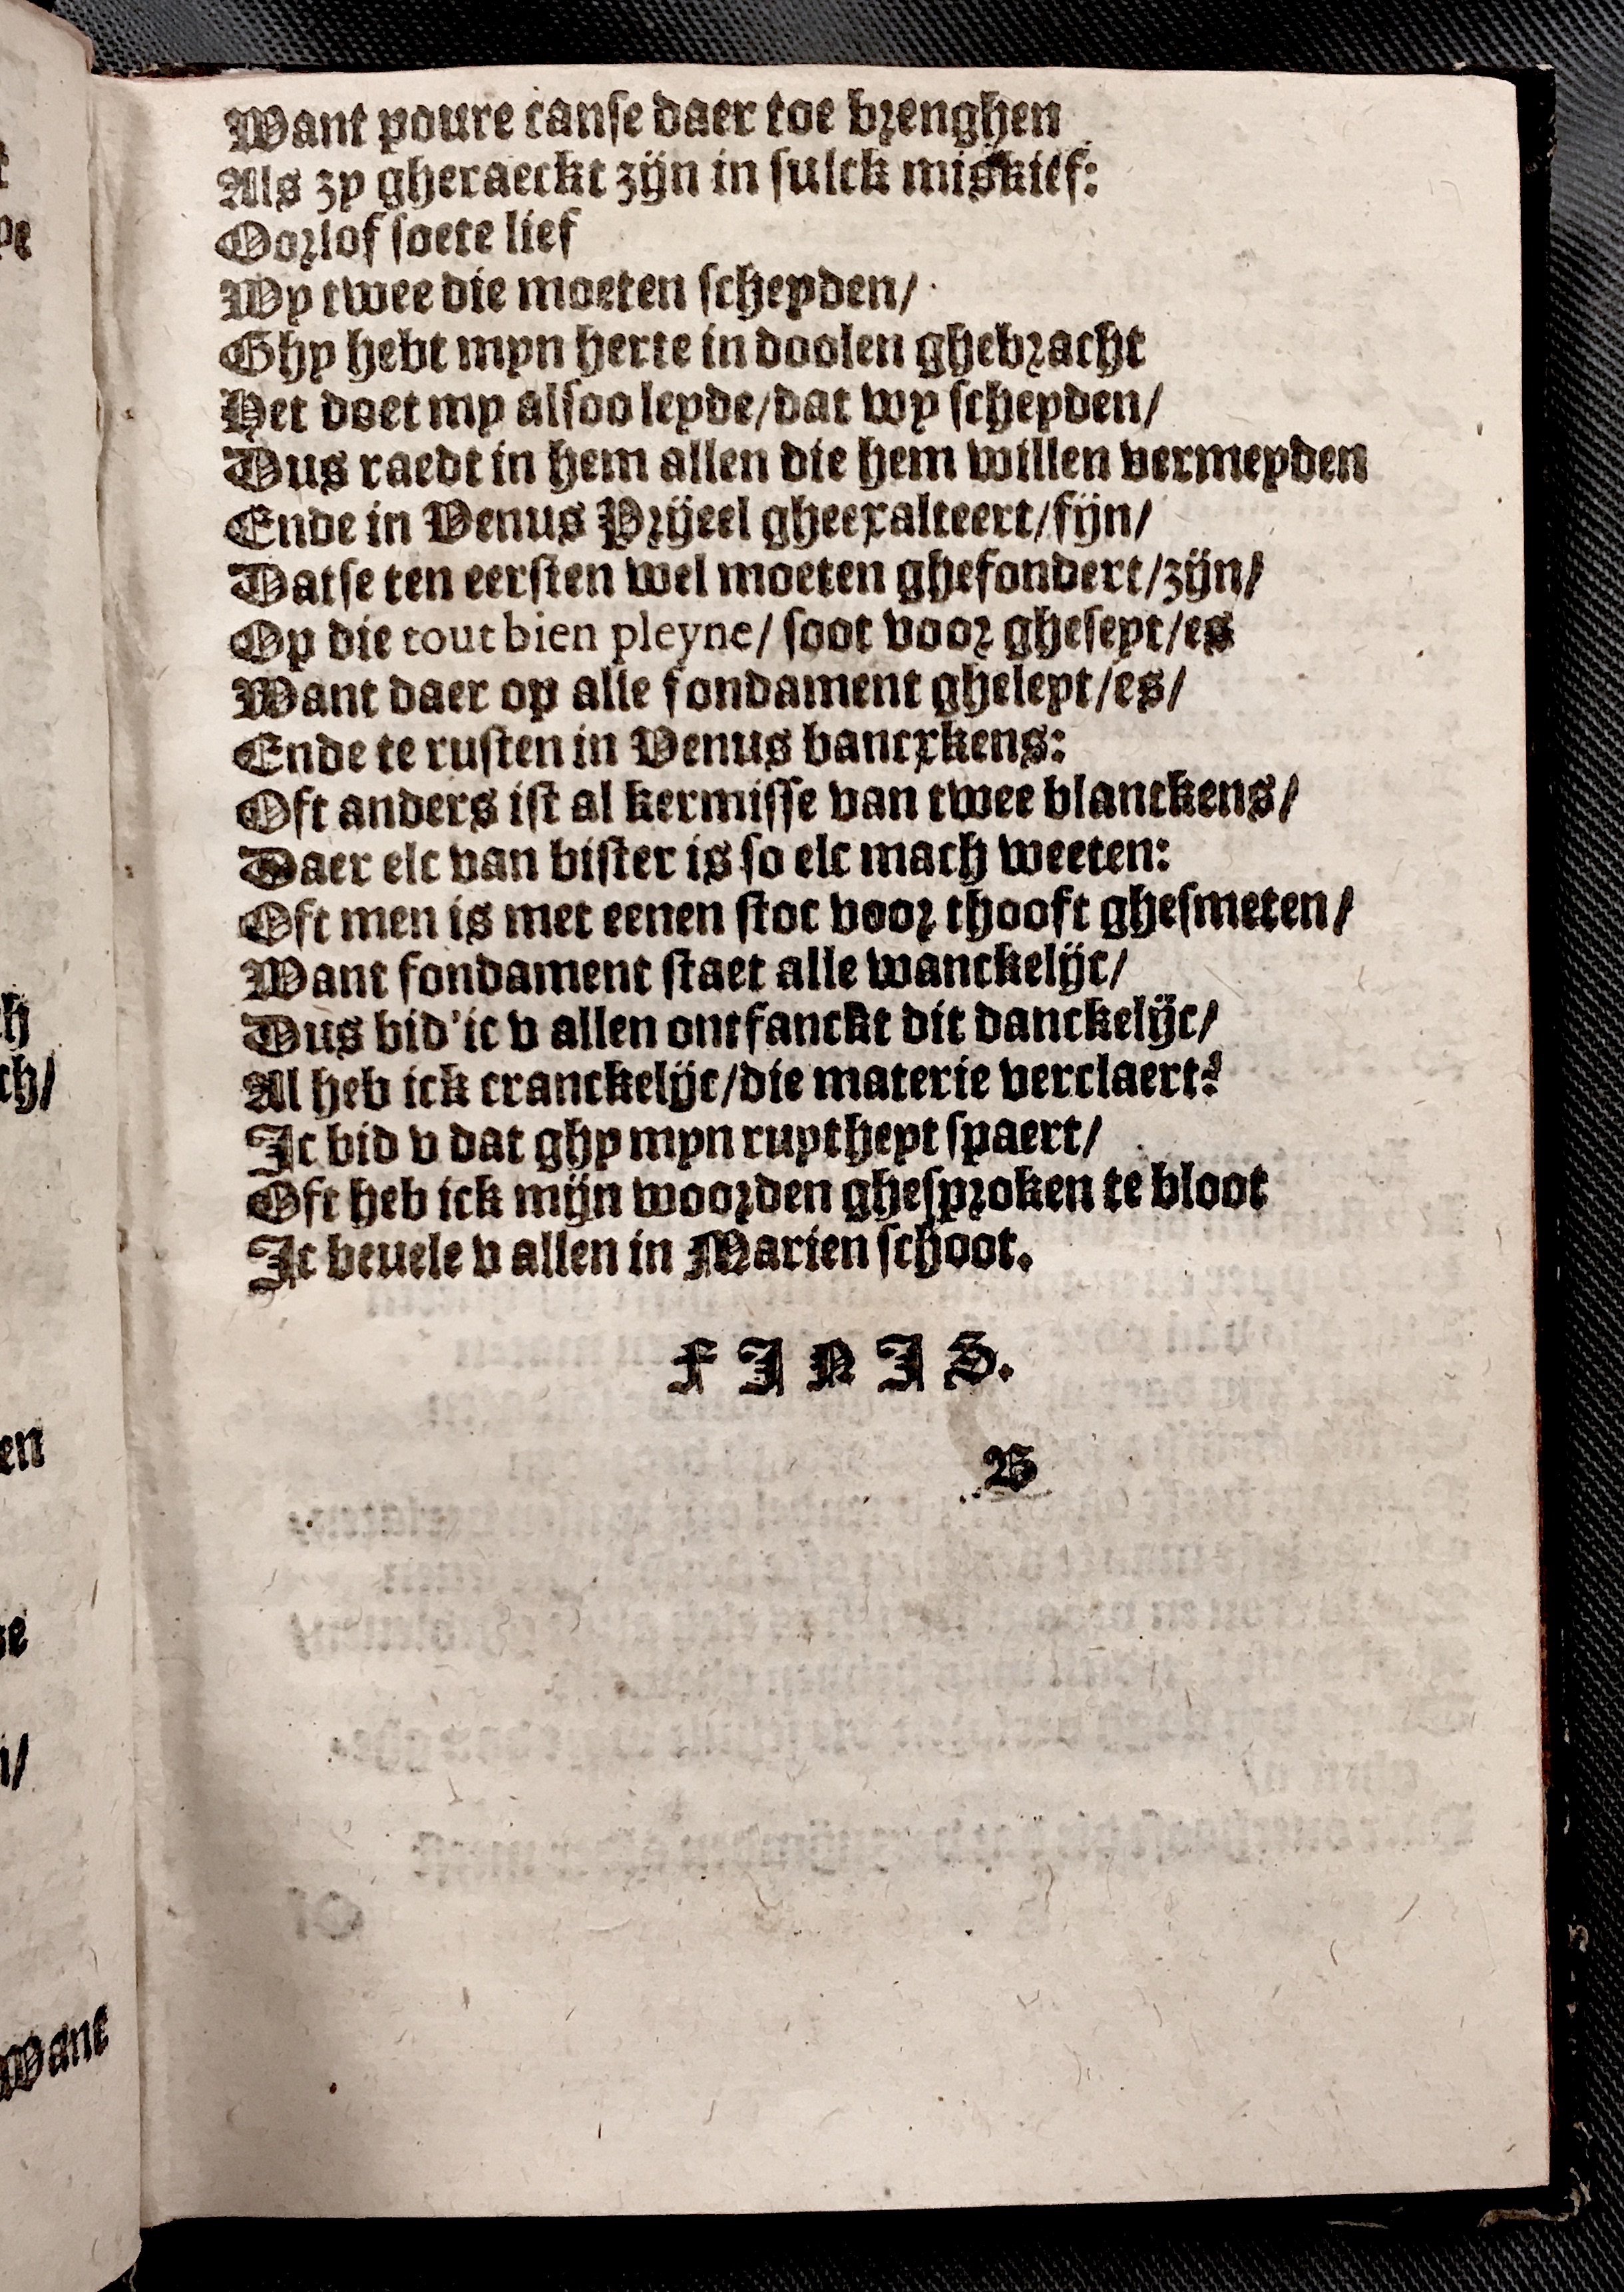 Want poure canse daer toe brenghen
Als zy gheraeckt zijn in sulck miskief:
Oorlof soete lief
Wy twee die moeten scheyden/
Ghy hebt myn herte in doolen ghebracht
Het doet my alsoo leyde/dat wy scheyden/
Dus raedt in hem allen die hem willen vermeyden
Ende in Venus Prijeel gheexalteert/fijn/
Datse ten eersten wel moeten ghefondert/zijn/
Op die tout bien pleyne/ soot voor gheseyt/es
Want daer op alle fondament gheleyt/es/
Ende te rusten in Venus bancxkens:
Oft anders ist al kermisse van twee blanckens/
Daer elc van bister is so elc mach weeten:
Oft men is met eenen stoc voor thooft ghesmeten/
Want fondament staet alle wanckelijc/
Dus bid'ic v allen ontfanckt dit danckelijc/
Al heb ick cranckelijc/die materie verclaert?
Ic bid v dat ghy myn ruytheyt spaert/
Oft heb ick mijn woorden ghesproken te bloot
Ic beuele v allen in Marien schoot.
FINIS.
B
Want